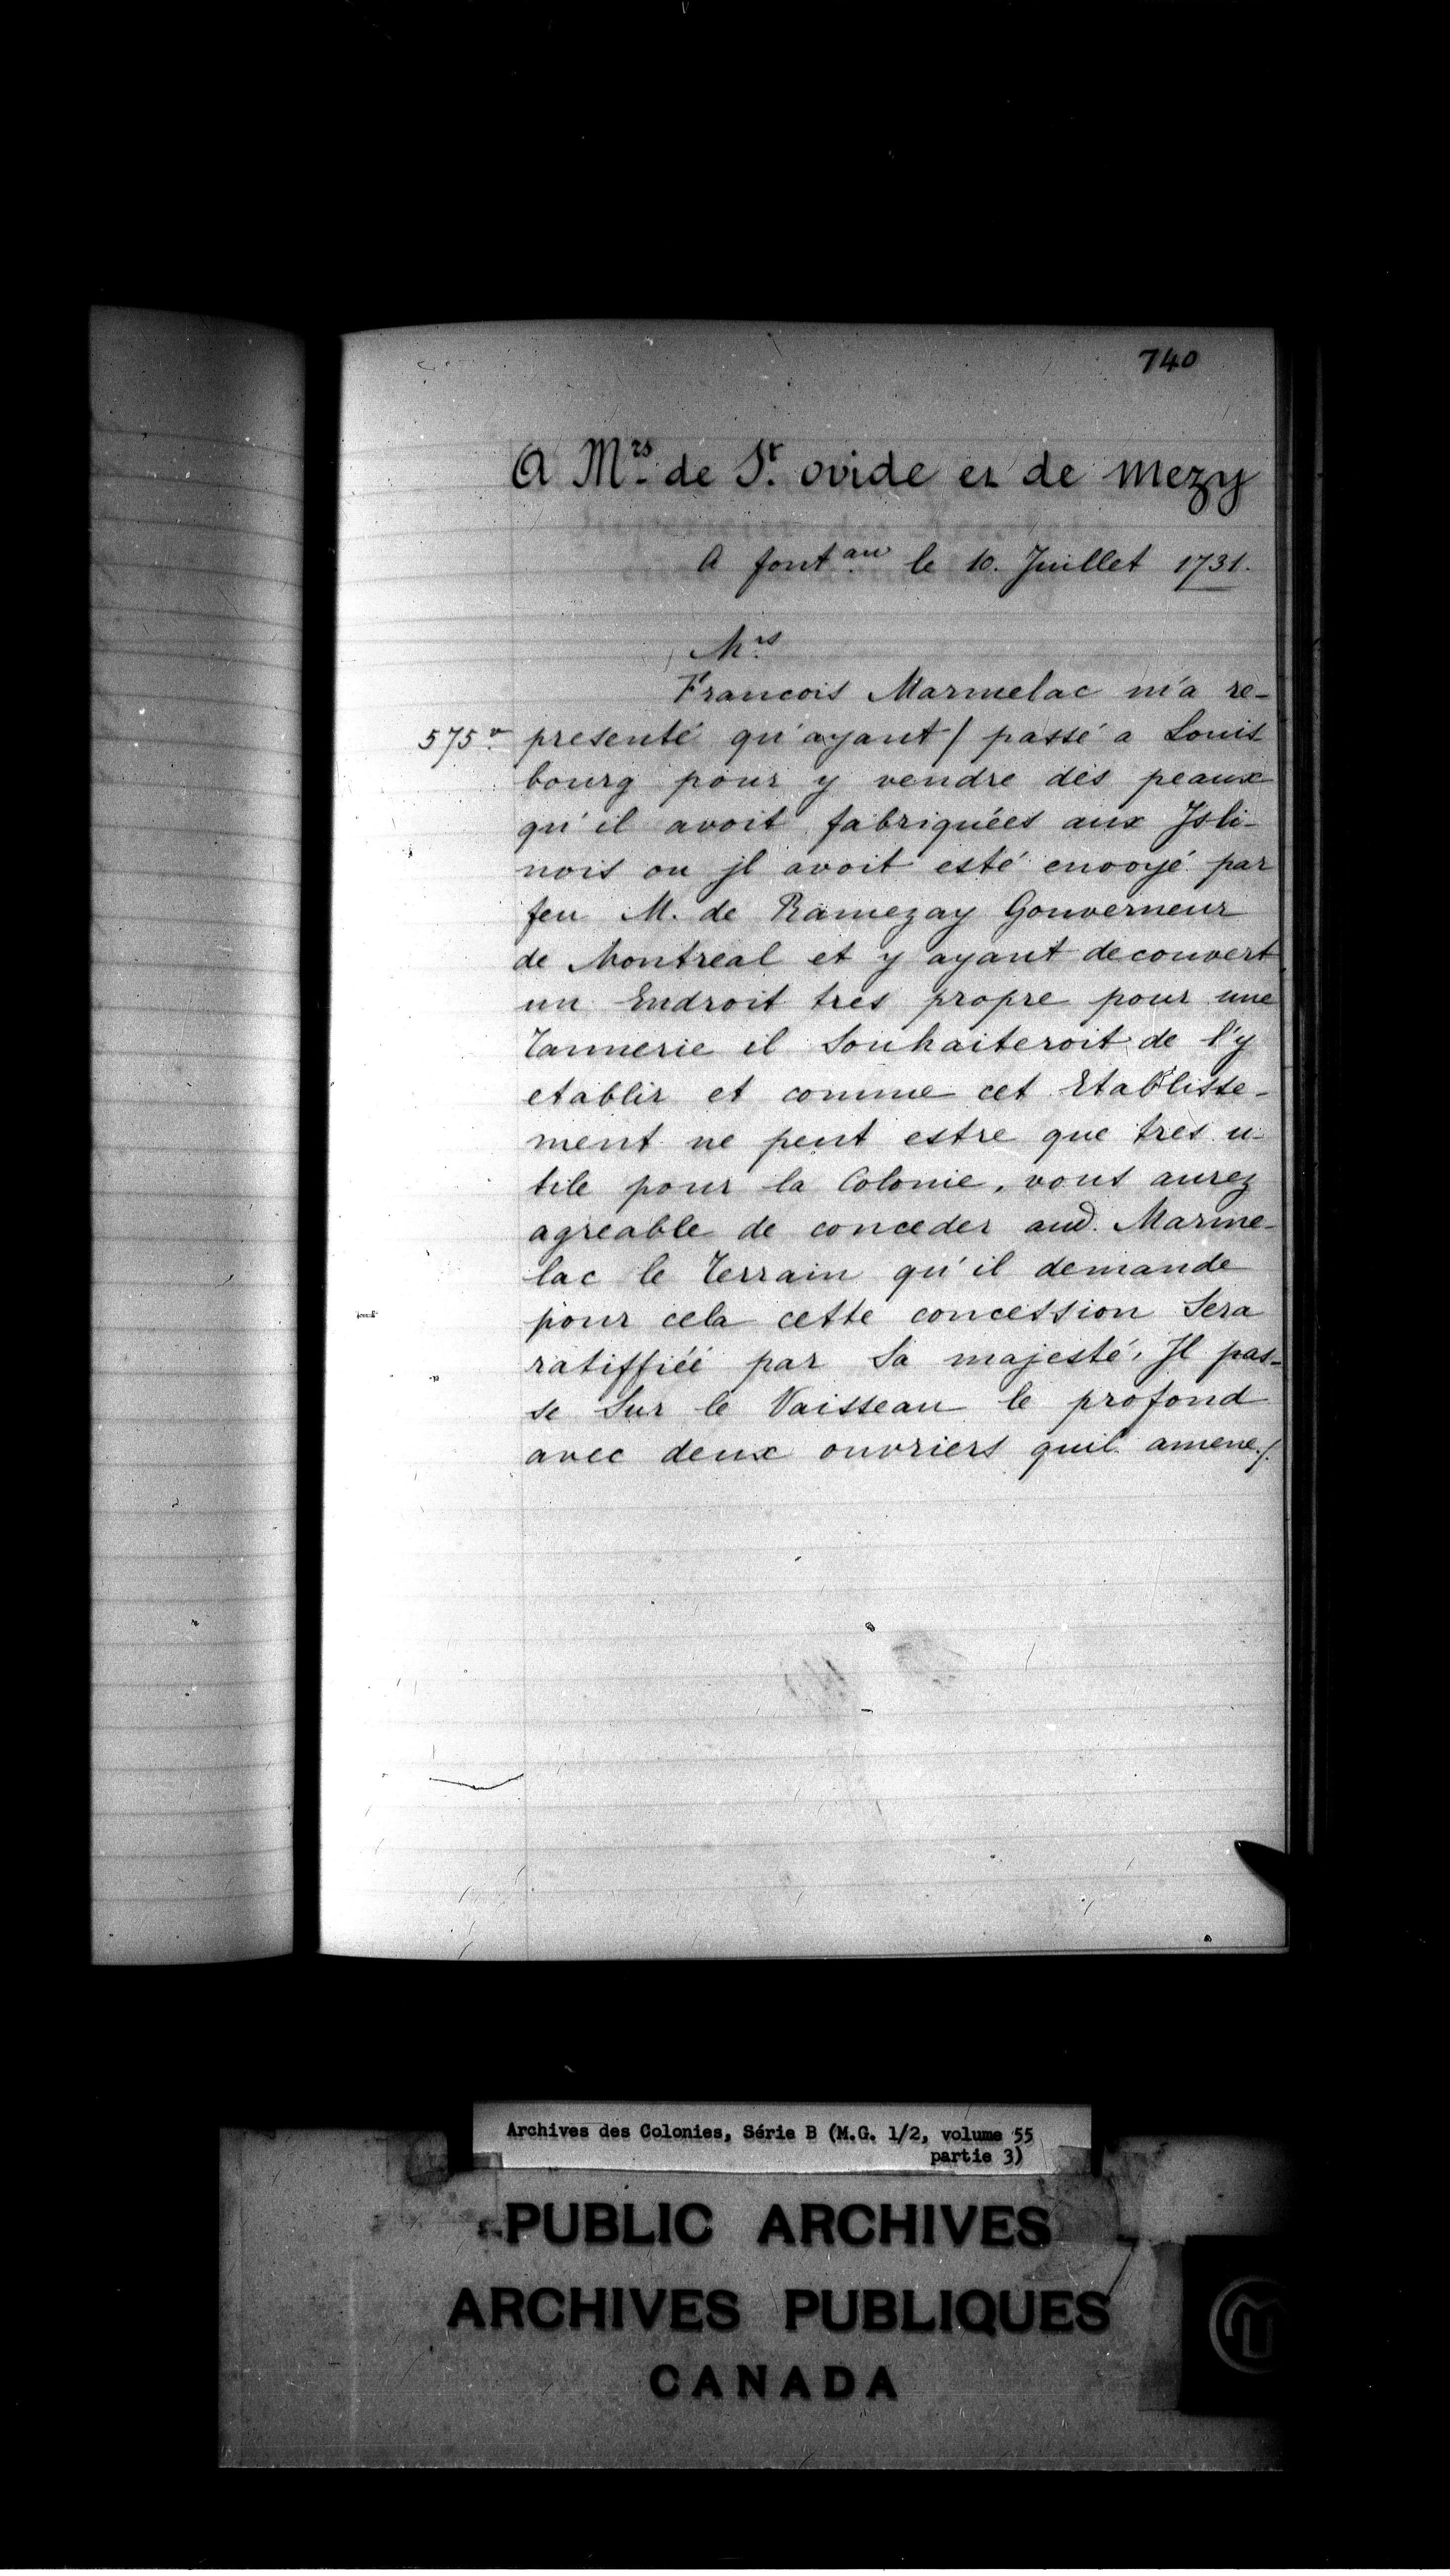 740
A Mrs. de St. ovide et de mezy
A font.au le 10. Juillet 1731.
Mrs
Francois Marmelac m'a re-
575v. presenté qu'ayant / passé a Louis
bourg pour y vendre des peaux
qu'il avoit fabriquées aux Isli-
nois ou jl avoit esté envoyé par
feu M. de Ramezay Gouverneur
de Montreal et y ayant decouvert
un Endroit tres propre pour une
Tannerie il Souhaiteroit de l'y
etablir et comme cet Etablisse-
ment ne peut estre que tres u-
tile pour la Colonie, vous aurez
agreable de conceder aud. Marme-
lac le Terrain qu'il demande
pour cela cette concession Sera
ratiffiéé par Sa majesté, Il pas-
se Sur le Vaisseau le profond
avec deux ouvriers quil amene./.
Archives des Colonies, Série B (M.G. 1/2, volume 55
partie 3)
PUBLIC ARCHIVES
ARCHIVES PUBLIQUES
CANADA